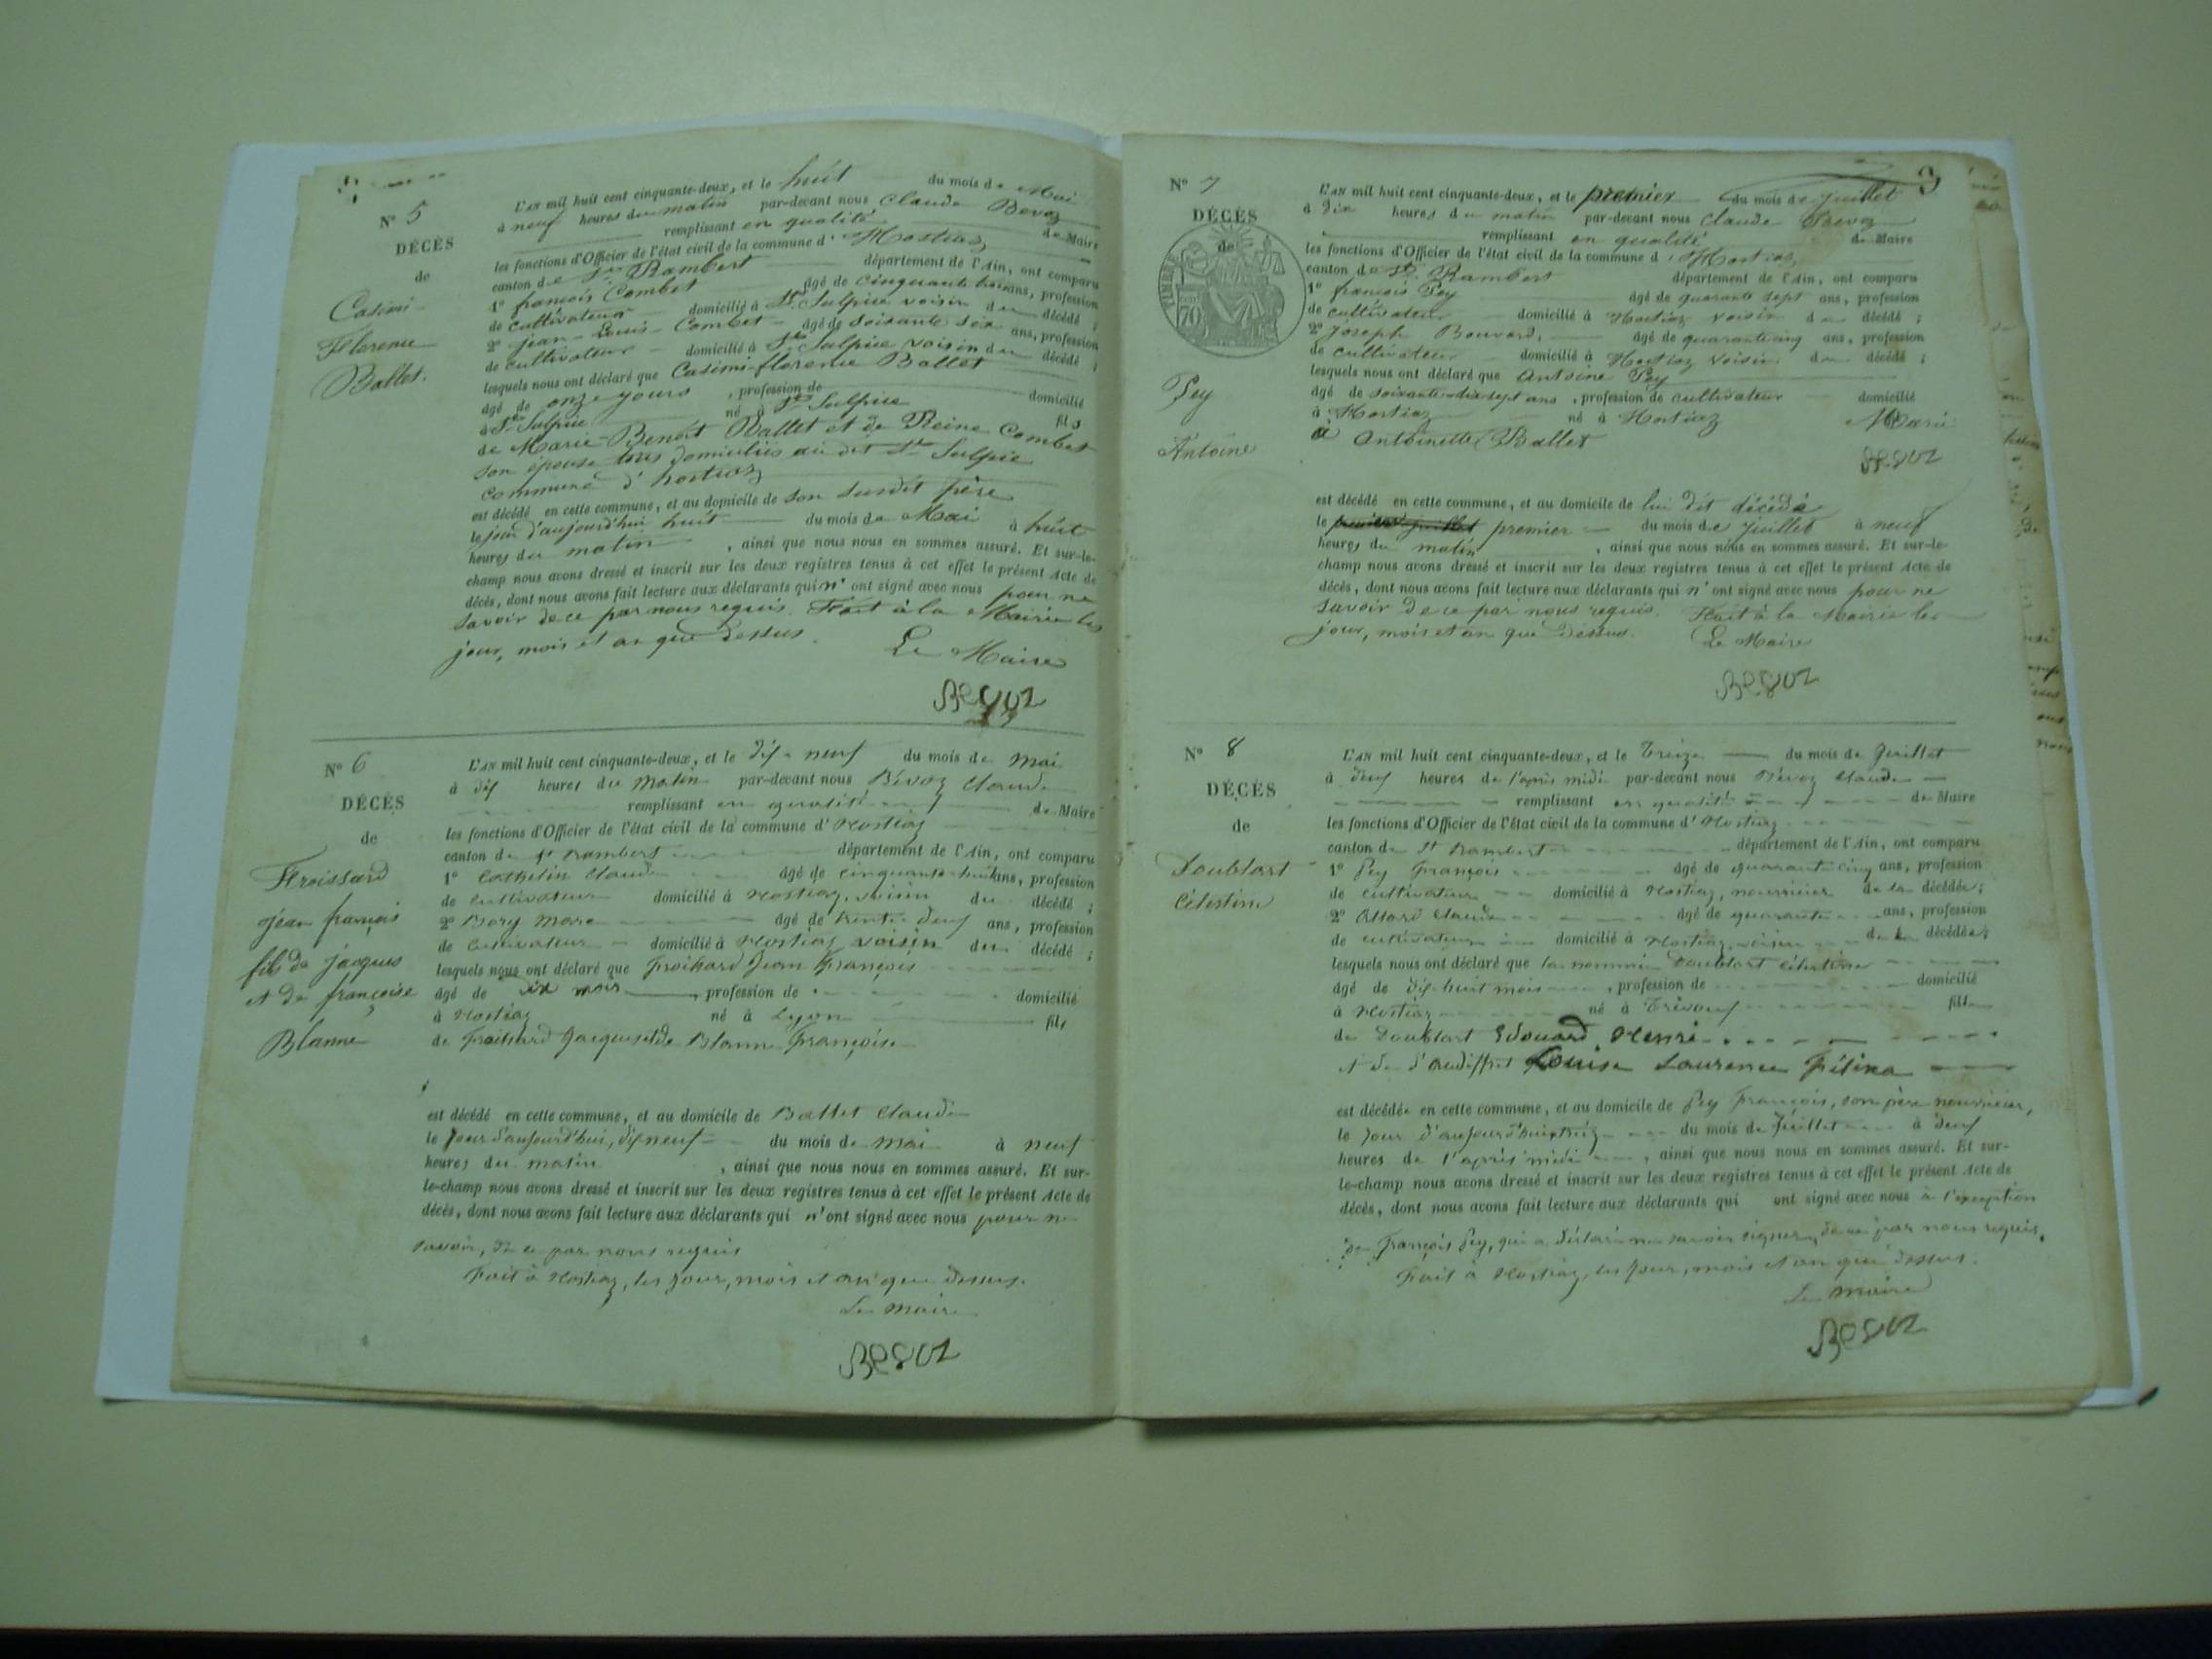 N° 5
DÉCÈS
de
Casimi-
Florence
Ballet.
L'AN mil huit cent cinquante-deux, et le huit du mois de Mai
à neuf heures du matin par-devant nous Claude Bevoz
remplissant en qualité de Maire
les fonctions d'Officier de l'état civil de la commune d' Hostiaz
canton de St Rambert département de l'Ain, ont comparu
1° françois Combet âgé de cinquante ans, profession
de cultivateur domicilié à St Sulpice voisin du décédé ;
2° jean-Louis Combet âgé de soixante six ans, profession
de cultivateur domicilié à St Sulpice voisin du décédé ;
lesquels nous ont déclaré que Casimi-florence Ballet
âgé de onze jours , profession de domicilié
à St Sulpice né à St Sulpice fils
de Marie-Benoit Ballet et de Reine Combet
son épouse tous domiciliés au dit St Sulpice
commune d'hostiaz
est décédé en cette commune, et au domicile de son susdit père
le jour d'aujourd'hui huit du mois de Mai à huit
heures du matin , ainsi que nous nous en sommes assuré. Et sur-le-
champ nous avons dressé et inscrit sur les deux registres tenus à cet effet le présent Acte de
décès, dont nous avons fait lecture aux déclarants qui n'ont signé avec nous pour ne
savoir de ce par nous requis. Fait à la Mairie les
jour, mois et an que dessus.
Le Maire
Bevoz
N° 6
DÉCÈS
de
Froissard
jean françois
fils de jacques
et de françoise
Blanne
L'AN mil huit cent cinquante-deux, et le dix-neuf du mois de mai
à dix heures du matin par-devant nous Bévoz Claude
remplissant en qualité de Maire
les fonctions d'Officier de l'état civil de la commune d' Hostiaz
canton de St Rambert département de l'Ain, ont comparu
1° Cathelin Claude âgé de cinquante-huit ans, profession
de cultivateur domicilié à Hostiaz, voisin du décédé ;
2° Bory Marc âgé de trente-deux ans, profession
de cultivateur domicilié à Hostiaz voisin du décédé ;
lesquels nous ont déclaré que Froihard Jean François
âgé de six mois , profession de domicilié
à Hostiaz né à Lyon fils
de Froihard Jacques et de Blanne Françoise
est décédé en cette commune, et au domicile de Ballet Claude
le jour d'aujourd'hui, dix neuf du mois de mai à neuf
heures du matin , ainsi que nous nous en sommes assuré. Et sur-
le-champ nous avons dressé et inscrit sur les deux registres tenus à cet effet le présent Acte de
décès, dont nous avons fait lecture aux déclarants qui n'ont signé avec nous pour ne
savoir, de ce par nous requis
Fait à Hostiaz, les jour, mois et an que dessus.
Le Maire
Bevoz
3
N° 7
DÉCÈS
de
TIMBRE
70
Pey
Antoine
L'AN mil huit cent cinquante-deux, et le premier du mois de Juillet
à dix heures du matin par-devant nous Claude Bevoz
remplissant en qualité de Maire
les fonctions d'Officier de l'état civil de la commune d' Hostiaz
canton de St Rambert département de l'Ain, ont comparu
1° françois Pey âgé de quarante sept ans, profession
de cultivateur domicilié à Hostiaz voisin du décédé ;
2° Joseph Bouvard, âgé de quarante cinq ans, profession
de cultivateur domicilié à Hostiaz voisin du décédé ;
lesquels nous ont déclaré que Antoine Pey
âgé de soixante-dix-sept ans , profession de cultivateur domicilié
à Hostiaz né à Hostiaz Marié
à Antoinette Ballet
Bevoz
est décédé en cette commune, et au domicile de lui dit décédé
le premier juillet premier du mois de Juillet à neuf
heures du matin , ainsi que nous nous en sommes assuré. Et sur-le-
champ nous avons dressé et inscrit sur les deux registres tenus à cet effet le présent Acte de
décès, dont nous avons fait lecture aux déclarants qui n'ont signé avec nous pour ne
savoir de ce par nous requis. Fait à la Mairie les
jour, mois et an que dessus.
Le Maire
Bevoz
N° 8
DÉCÈS
de
Doublart
Célestine
L'AN mil huit cent cinquante-deux, et le treize du mois de Juillet
à deux heures de l'après midi par-devant nous Bévoz Claude
remplissant en qualité de Maire
les fonctions d'Officier de l'état civil de la commune d' Hostiaz
canton de St Rambert département de l'Ain, ont comparu
1° Pey François âgé de quarante-cinq ans, profession
de cultivateur domicilié à Hostiaz, nourricier de la décédée ;
2° Allard Claude âgé de quarante ans, profession
de cultivateur domicilié à Hostiaz, voisin de la décédée ;
lesquels nous ont déclaré que la nommée Doublart Célestine
âgé de dix-huit mois , profession de domicilié
à Hostiaz né à Trévoux fille
de Doublart Edouard Henri
et de d'audiffret Louise Laurence
est décédée en cette commune, et au domicile de Pey François, son père nourricier,
le jour d'aujourd'hui treize du mois de Juillet à deux
heures de l'après midi , ainsi que nous nous en sommes assuré. Et sur-
le-champ nous avons dressé et inscrit sur les deux registres tenus à cet effet le présent Acte de
décès, dont nous avons fait lecture aux déclarants qui ont signé avec nous à l'exception
de François Pey, qui a déclaré ne savoir signer, de ce par nous requis.
Fait à Hostiaz, les jour, mois et an que dessus.
Le Maire
Bevoz